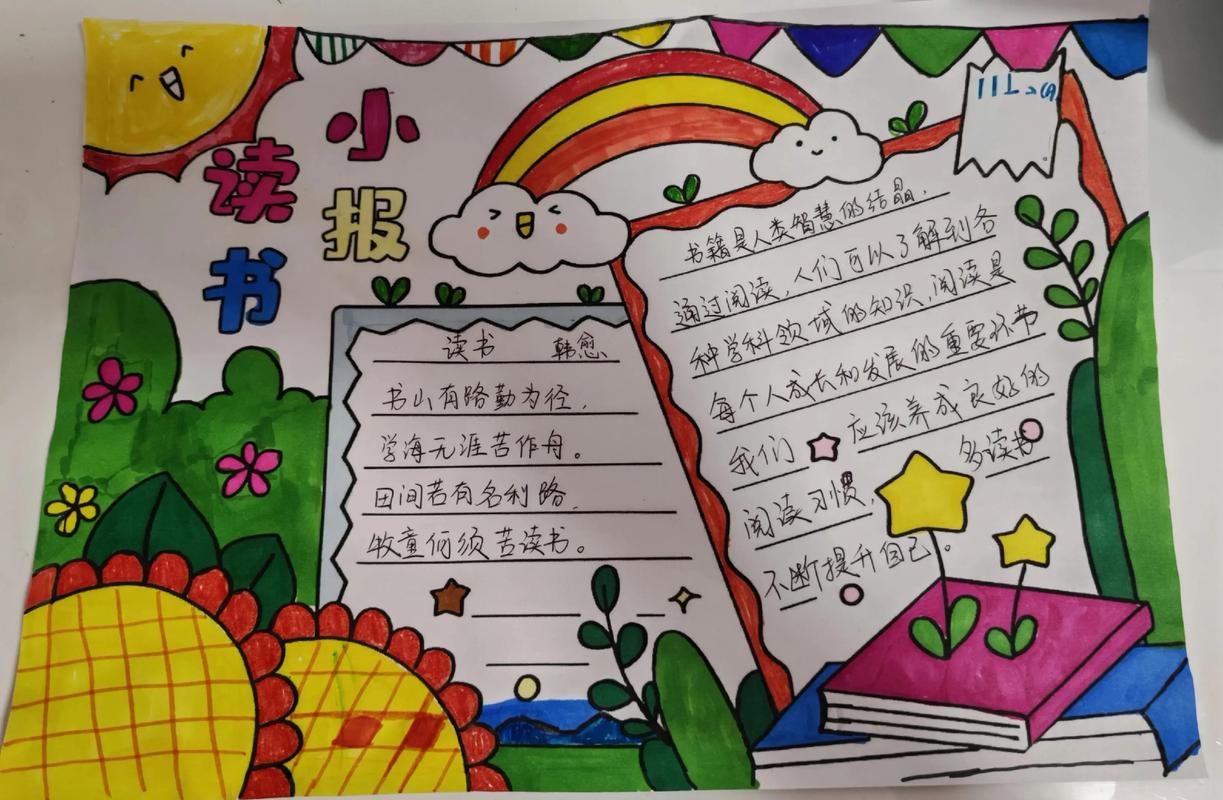 读书
小报
读书 韩愈
书山有路勤为径，
学海无涯苦作舟。
田间若有名利路，
牧童何须苦读书。
书籍是人类智慧的结晶，
通过阅读，人们可以了解到各
种学科领域的知识，阅读是
每个人成长和发展的重要环节
我们 应该养成良好的
阅读习惯，多读书
不断提升自己。